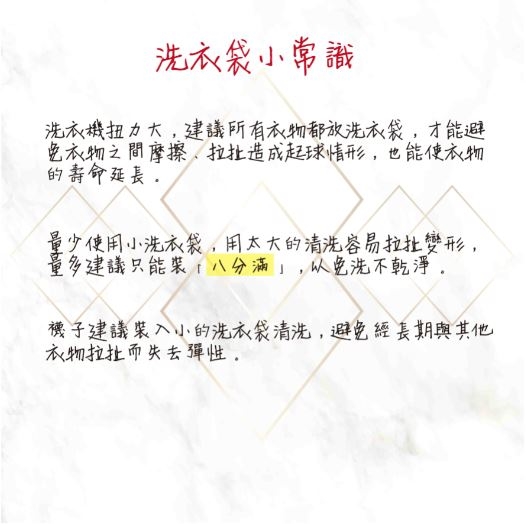 洗衣袋小常識
洗衣機扭力大，建議所有衣物都放洗衣袋，才能避
免衣物之間摩擦、拉扯造成起球情形，也能使衣物
的壽命延長。
量少使用小洗衣袋，用太大的清洗容易拉扯變形，
量多建議只能裝「八分滿」，以免洗不乾淨。
襪子建議裝入小的洗衣袋清洗，避免經長期與其他
衣物拉扯而失去彈性。